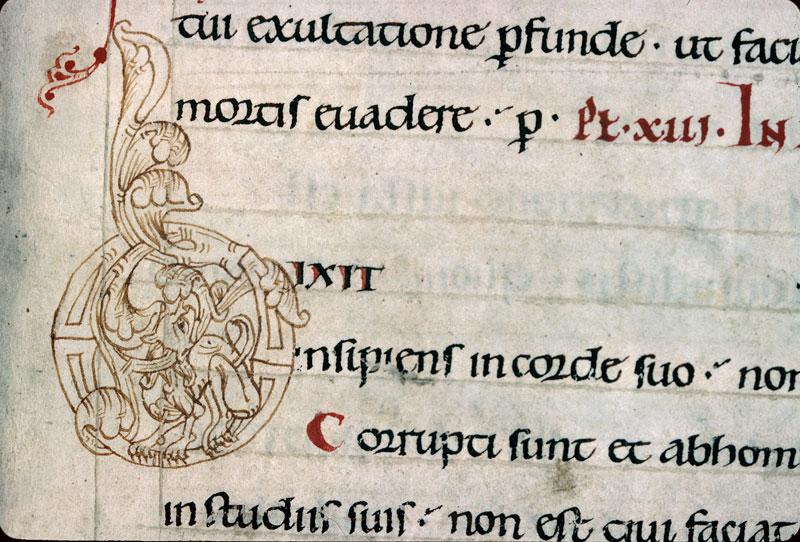 tui exultatione ꝑfunde · ut faci
mortis euadere · ꝑ · Ps · xiii · In
DIXIT
insipiens in corde suo · non
Corrupti sunt et abhom
in studiis suis · non est qui faciat